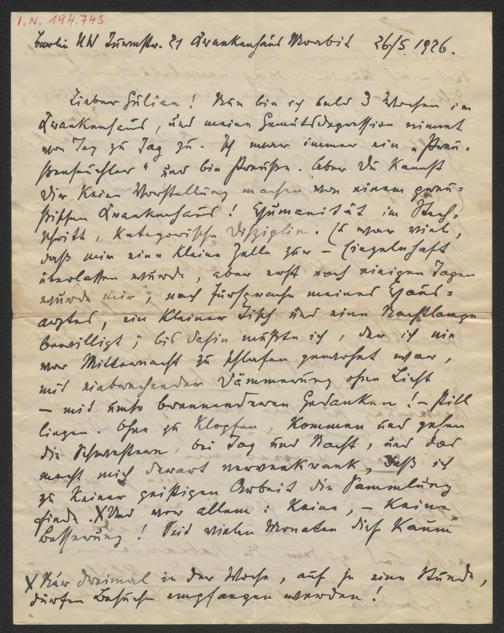 I.N. 194.743
Berlin NW Turmstr. 21 Krankenhaus Moabit 26/5. 1926.
Lieber Gilien! Nun bin ich bald 3 Wochen im
Krankenhaus, und meine Gemütsdepression nimmt
von Tag zu Tag zu. Ich war immer ein „Preu-
ßenseuchler“ und bin Preuße. Aber Du kannst
Dir keine Vorstellung machen von einem preu-
ßischen Krankenhaus! Humanität im Stech-
schritt, kategorische Disziplin. Es war viel,
daß mir eine kleine Zelle zur – Einzelhaft
überlassen wurde, aber erst nach einigen Tagen
wurde mir, nach Fürsprache meines Haus-
arztes, ein kleiner Tisch und eine Nachtlampe
bewilligt; bis dahin mußte ich, der ich nie
vor Mitternacht zu schlafen gewohnt war,
mit einbrechender Dämmerung ohne Licht
– mit umso brennenderen Gedanken! – still
liegen. Ohne zu klopfen, kommen und gehen
die Schwestern, bei Tag und Nacht, und das
macht mich derart nervenkrank, daß ich
zu keiner geistigen Arbeit die Sammlung
finde. X Und vor allem: keine, – keine
Besserung! Seit vielen Monaten dies kaum
X Nur dreimal in der Woche, auf je eine Stunde,
dürfen Besuche empfangen werden!